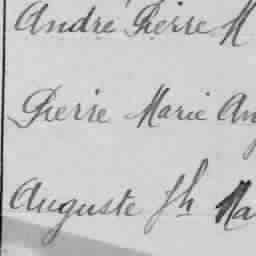 André Pierre M
Pierre Marie An
Auguste Jh Ma